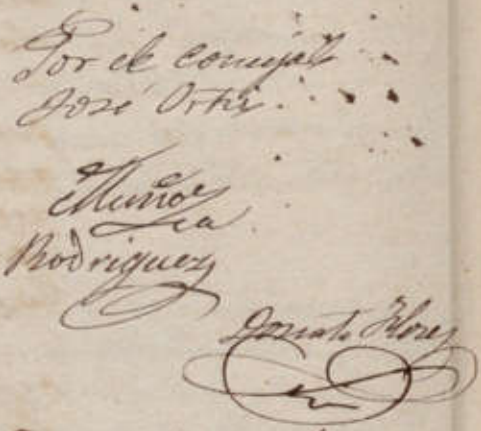 Por el concejal
José Ortiz.
Muñoz
Rodriguez
Donato Florez